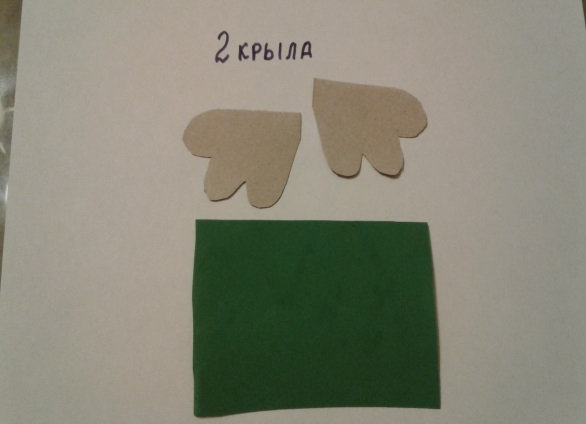 2 КРЫЛА